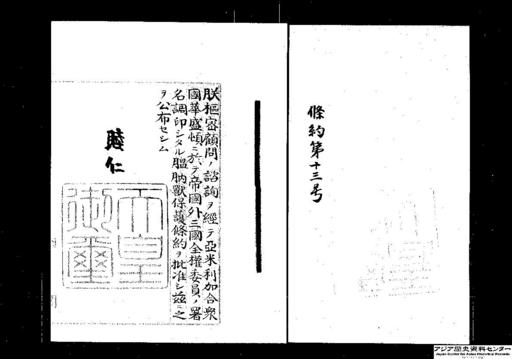 條約第十三号
朕樞密顧問ノ諮詢ヲ經テ亞米利加合衆
國華盛頓ニ於テ帝國外三國全權委員ノ署
名調印シタル膃肭獸保護條約ヲ批准シ茲ニ之
ヲ公布セシム
睦仁
天皇
御璽
アジア歴史資料センター
Japan Center for Asian Historical Records